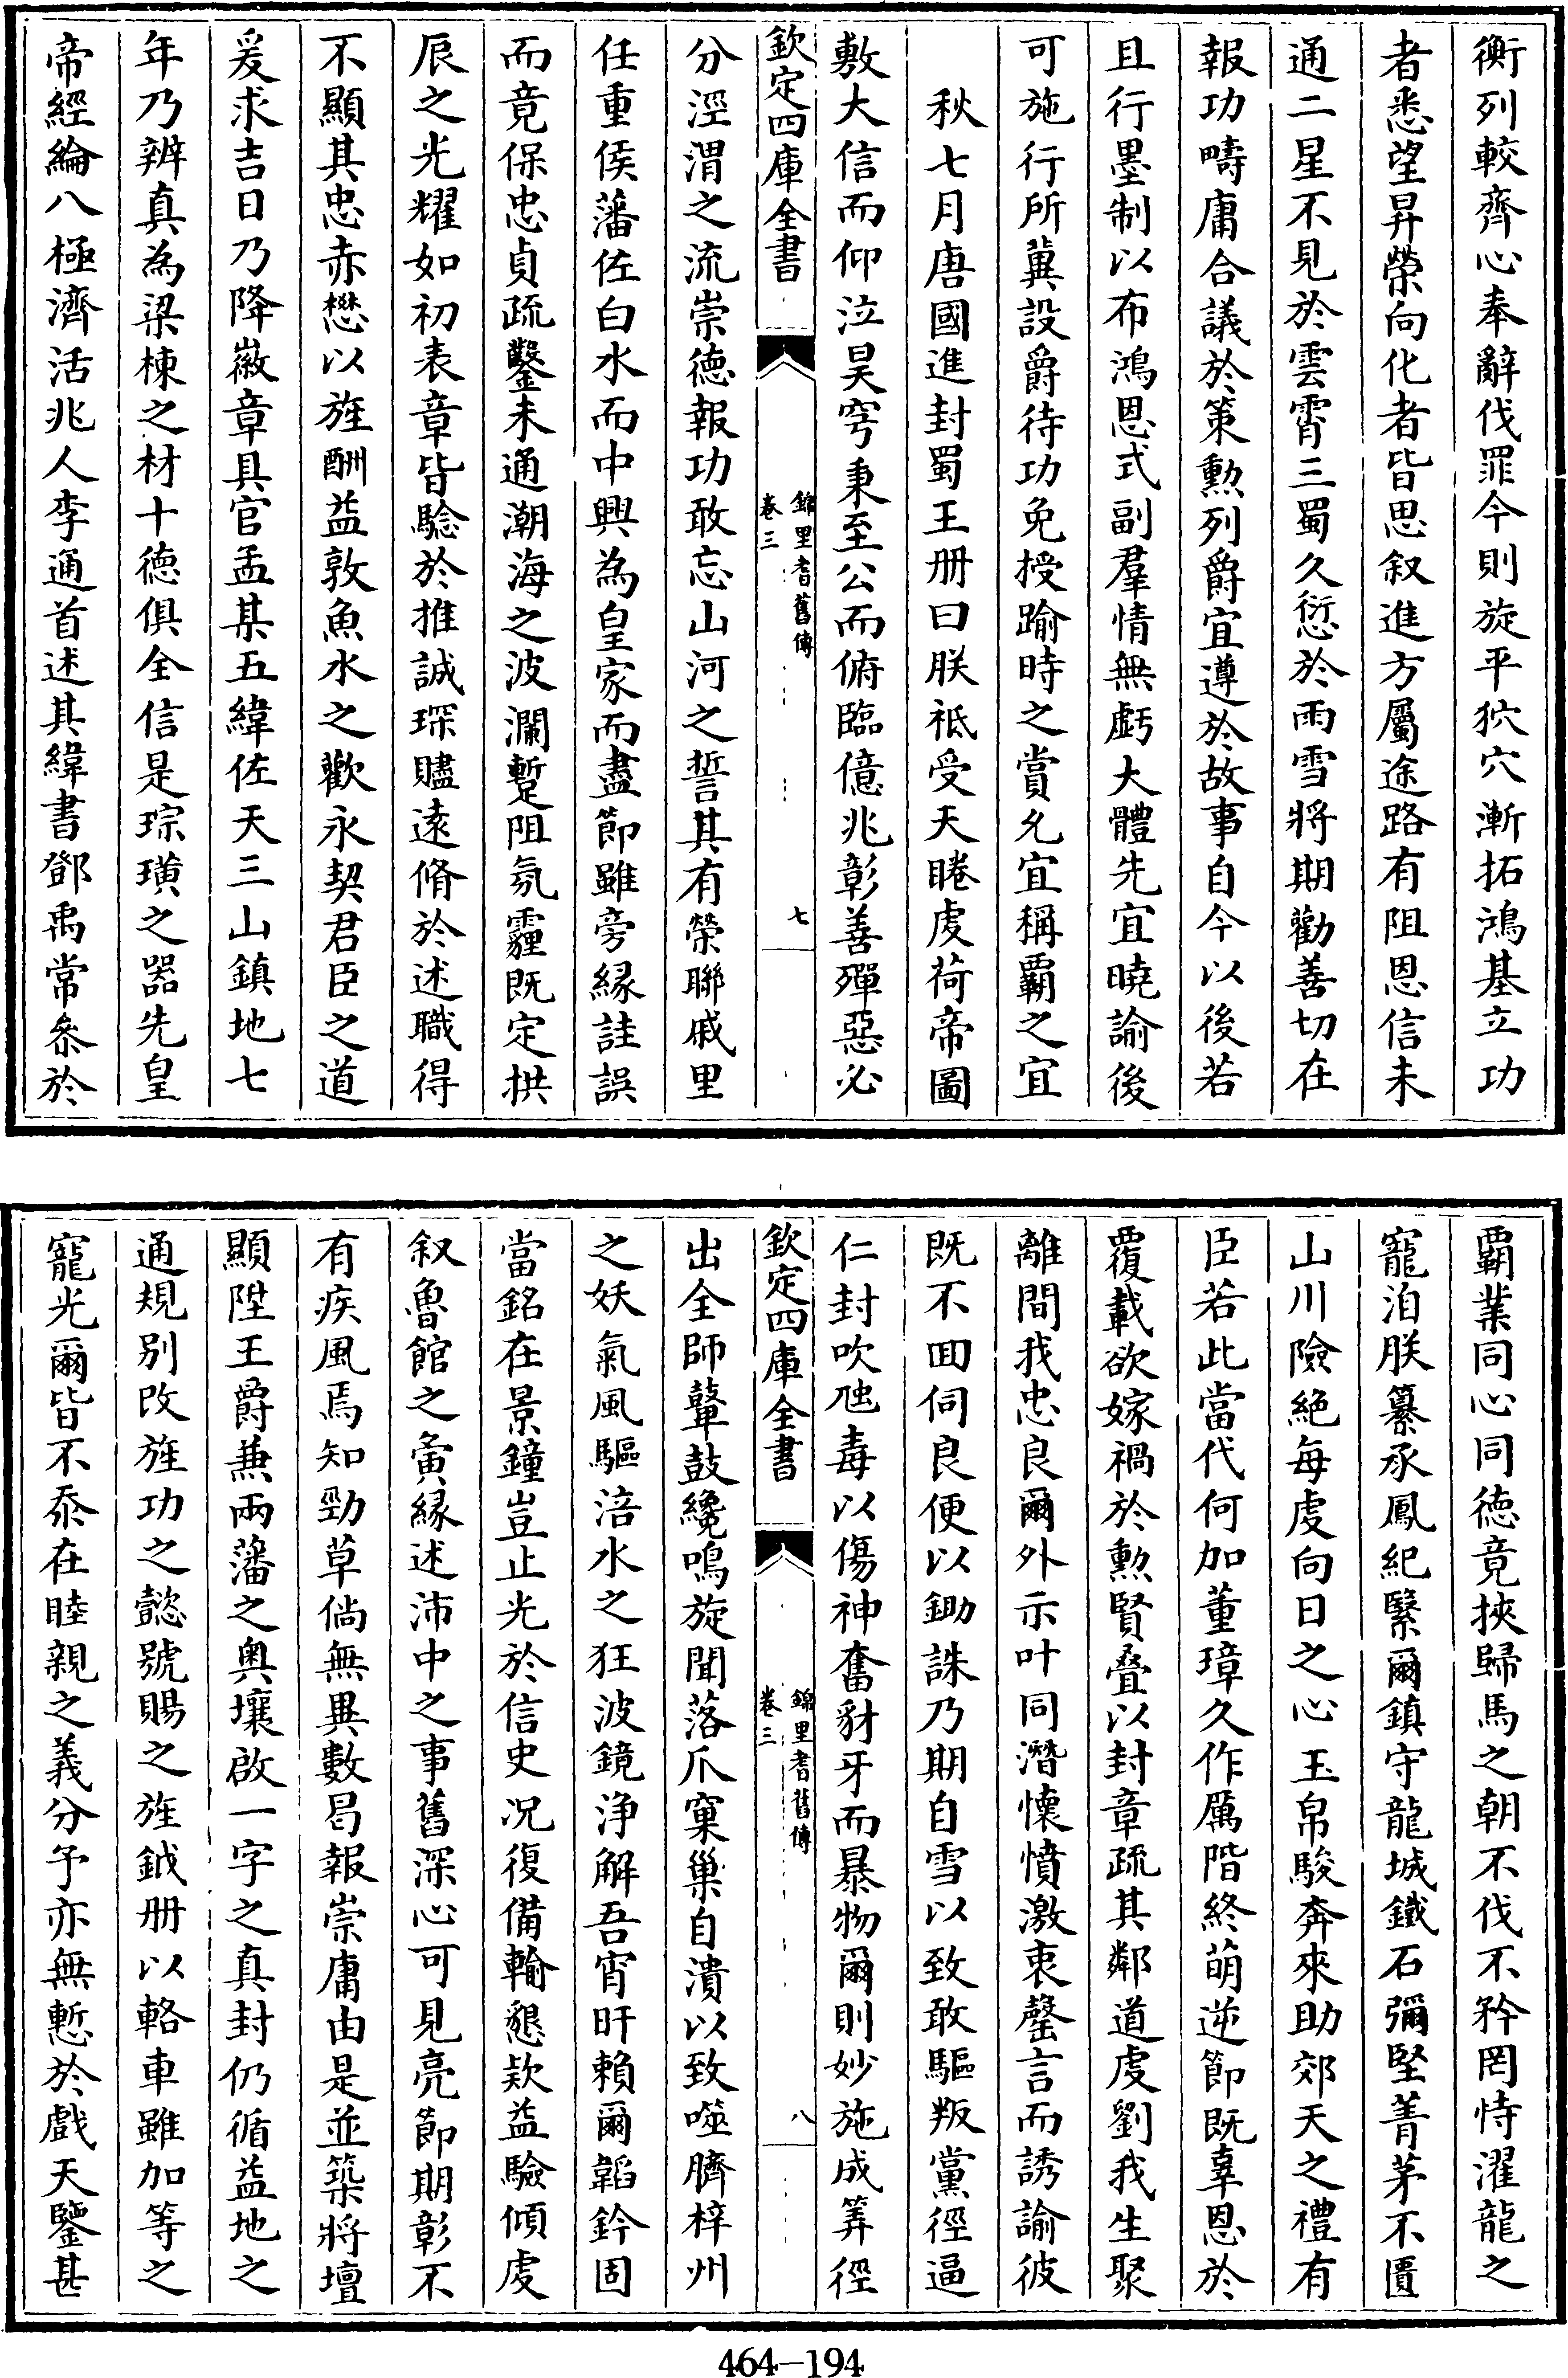 衡列較齊心奉辭伐罪今則旋平狄穴漸拓鴻基立功
者悉望昇榮向化者皆思叙進方屬途路有阻恩信未
通二星不見於雲霄三蜀久愆於雨雪將期勸善切在
報功疇庸合議於策勲列爵宜遵於故事自今以後若
且行墨制以布鴻恩式副羣情無虧大體先宜曉諭後
可施行所冀設爵待功免授踰時之賞允宜稱覇之宜
秋七月唐國進封蜀王册曰朕祗受天睠虔荷帝圖
敷大信而仰泣昊穹秉至公而俯臨億兆彰善殫惡必
欽定四庫全書
錦里耆舊傳
卷三
七
分涇渭之流崇德報功敢忘山河之誓其有榮聯戚里
任重侯藩佐白水而中興為皇家而盡節雖旁緣詿誤
而竟保忠貞疏鑿未通潮海之波瀾蹔阻氛霾既定拱
辰之光耀如初表章皆騐於推誠琛贐遠脩於述職得
不顯其忠赤懋以旌酬益敦魚水之歡永契君臣之道
爰求吉日乃降徽章具官孟某五緯佐天三山鎮地七
年乃辨真為梁棟之材十德俱全信是琮璜之器先皇
帝經綸八極濟活兆人李通首述其緯書鄧禹常叅於
覇業同心同德竟挾歸馬之朝不伐不矜罔恃濯龍之
寵洎朕纂承鳳紀繄爾鎮守龍城鐵石彌堅菁茅不匱
山川險絶每虔向日之心玉帛駿奔來助郊天之禮有
臣若此當代何加董璋久作厲階終萌逆節既辜恩於
覆載欲嫁禍於勲賢叠以封章疏其鄰道虔劉我生聚
離間我忠良爾外示叶同潛懷憤激衷罄言而誘諭彼
既不囘伺良便以鋤誅乃期自雪以致敢驅叛黨徑逼
仁封吹虺毒以傷神奮豺牙而暴物爾則妙施成筭徑
欽定四庫全書
錦里耆舊傳
卷三
八
出全師鼙鼓纔鳴旋聞落爪窠巢自潰以致噬臍梓州
之妖氣風驅涪水之狂波鏡浄解吾宵旰賴爾韜鈐固
當銘在景鐘豈止光於信史况復備輸懇欵益驗傾虔
叙魯館之夤緣述沛中之事舊深心可見亮節期彰不
有疾風焉知勁草倘無異數曷報崇庸由是並築將壇
顯陞王爵兼兩藩之奥壤啟一字之真封仍循益地之
通規别改旌功之懿號賜之旌鉞册以輅車雖加等之
寵光爾皆不忝在睦親之義分予亦無慙於戲天鑒甚
464-194